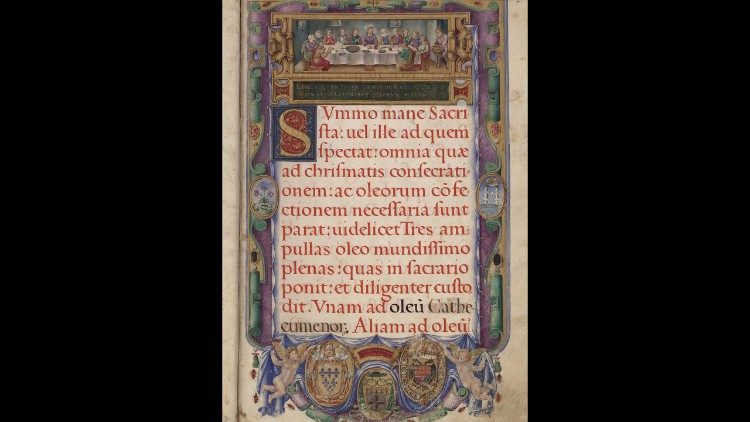 FERIA QVINTA IN CENA DOMINI CVM
CONSECRATIONIBVS OLEORVM MISSA
SVmmo mane Sacri
sta: uel ille ad quem
spectat: omnia quæ
ad chrismatis consecrati
onem: ac oleorum cõfe
ctionem necessaria sunt
parat: uidelicet Tres am
pullas oleo mundissimo
plenas: quas in sacrario
ponit: et diligenter custo
dit. Vnam ad oleũ Cathe
cumenor, Aliam ad oleũ